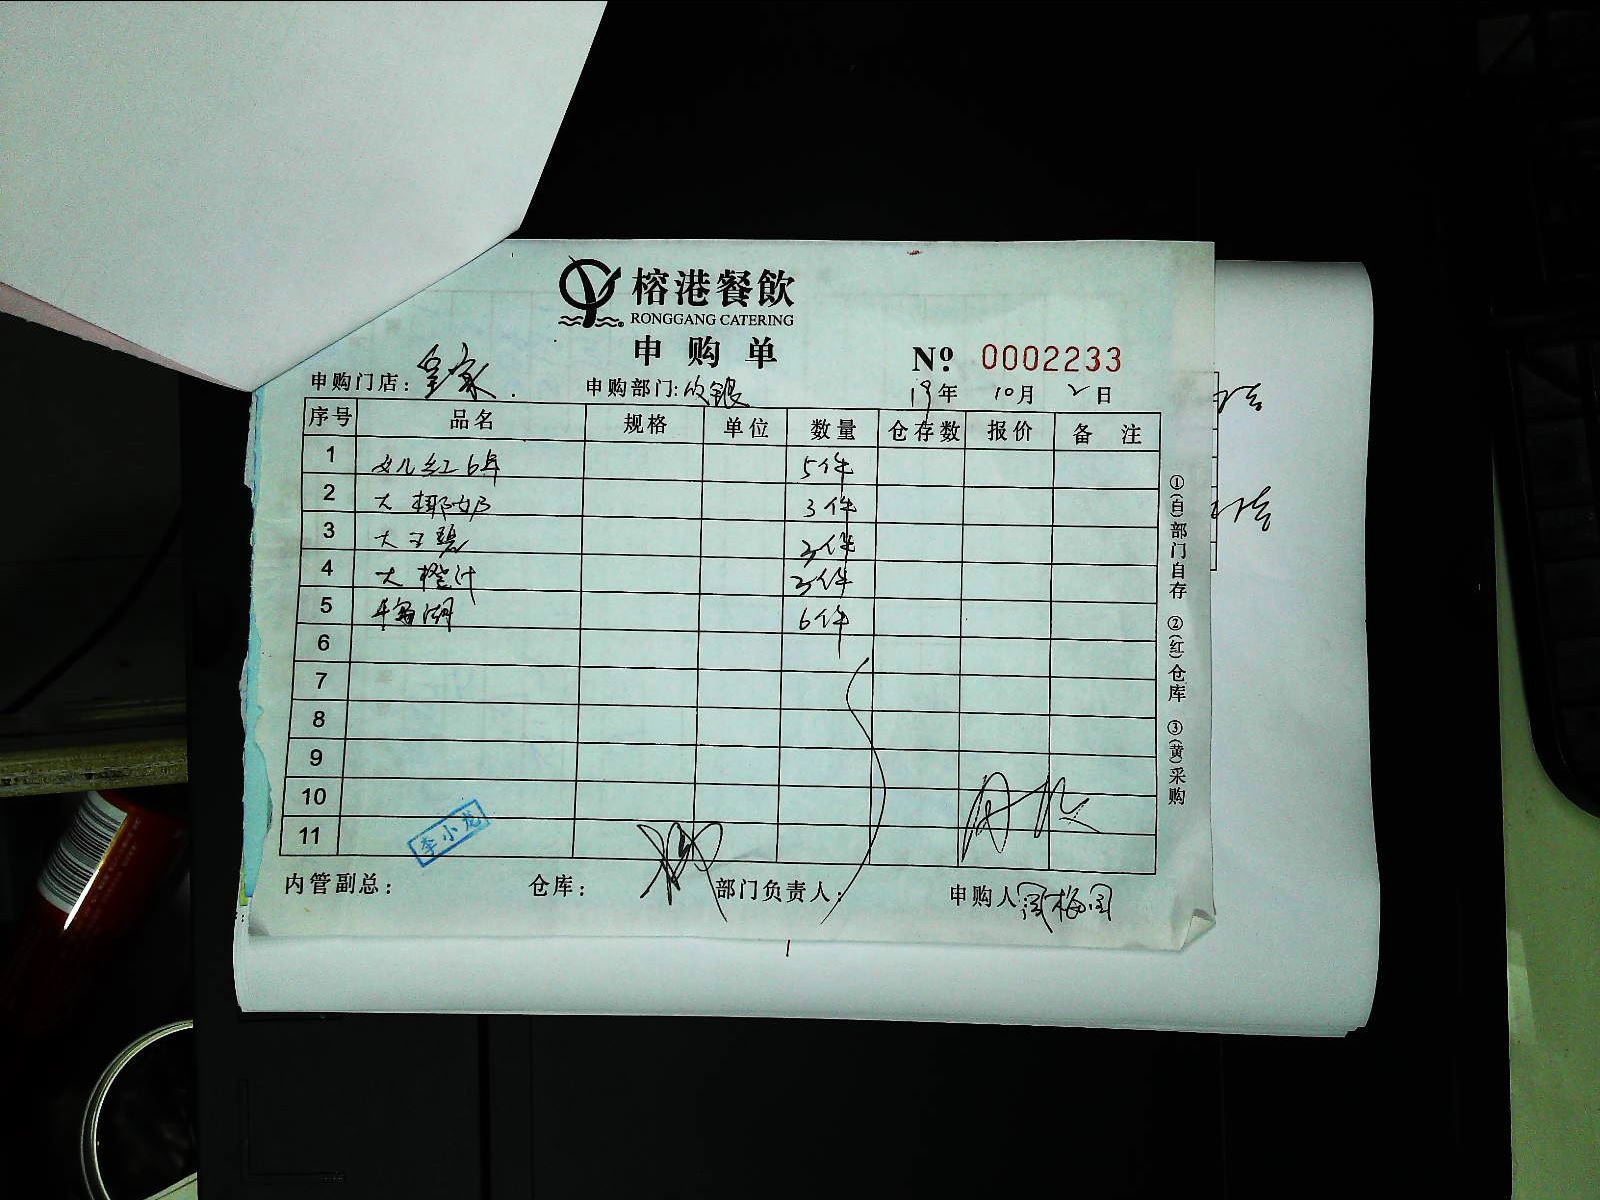 榕港餐飲
RONGGANG CATERING
申购单
№ 0002233
申购门店：皇家. 申购部门：收银 19年 10月 2日
序号 品名 规格 单位 数量 仓存数 报价 备注
1 女儿红6年 5件
2 大椰奶 3件
3 大王碧 3件
4 大橙汁 3件
5 6件
6
7
8
9
10
11
李小龙
内管副总： 仓库： 部门负责人： 申购人
①(白)部门自存 ②(红)仓库 ③(黄)采购